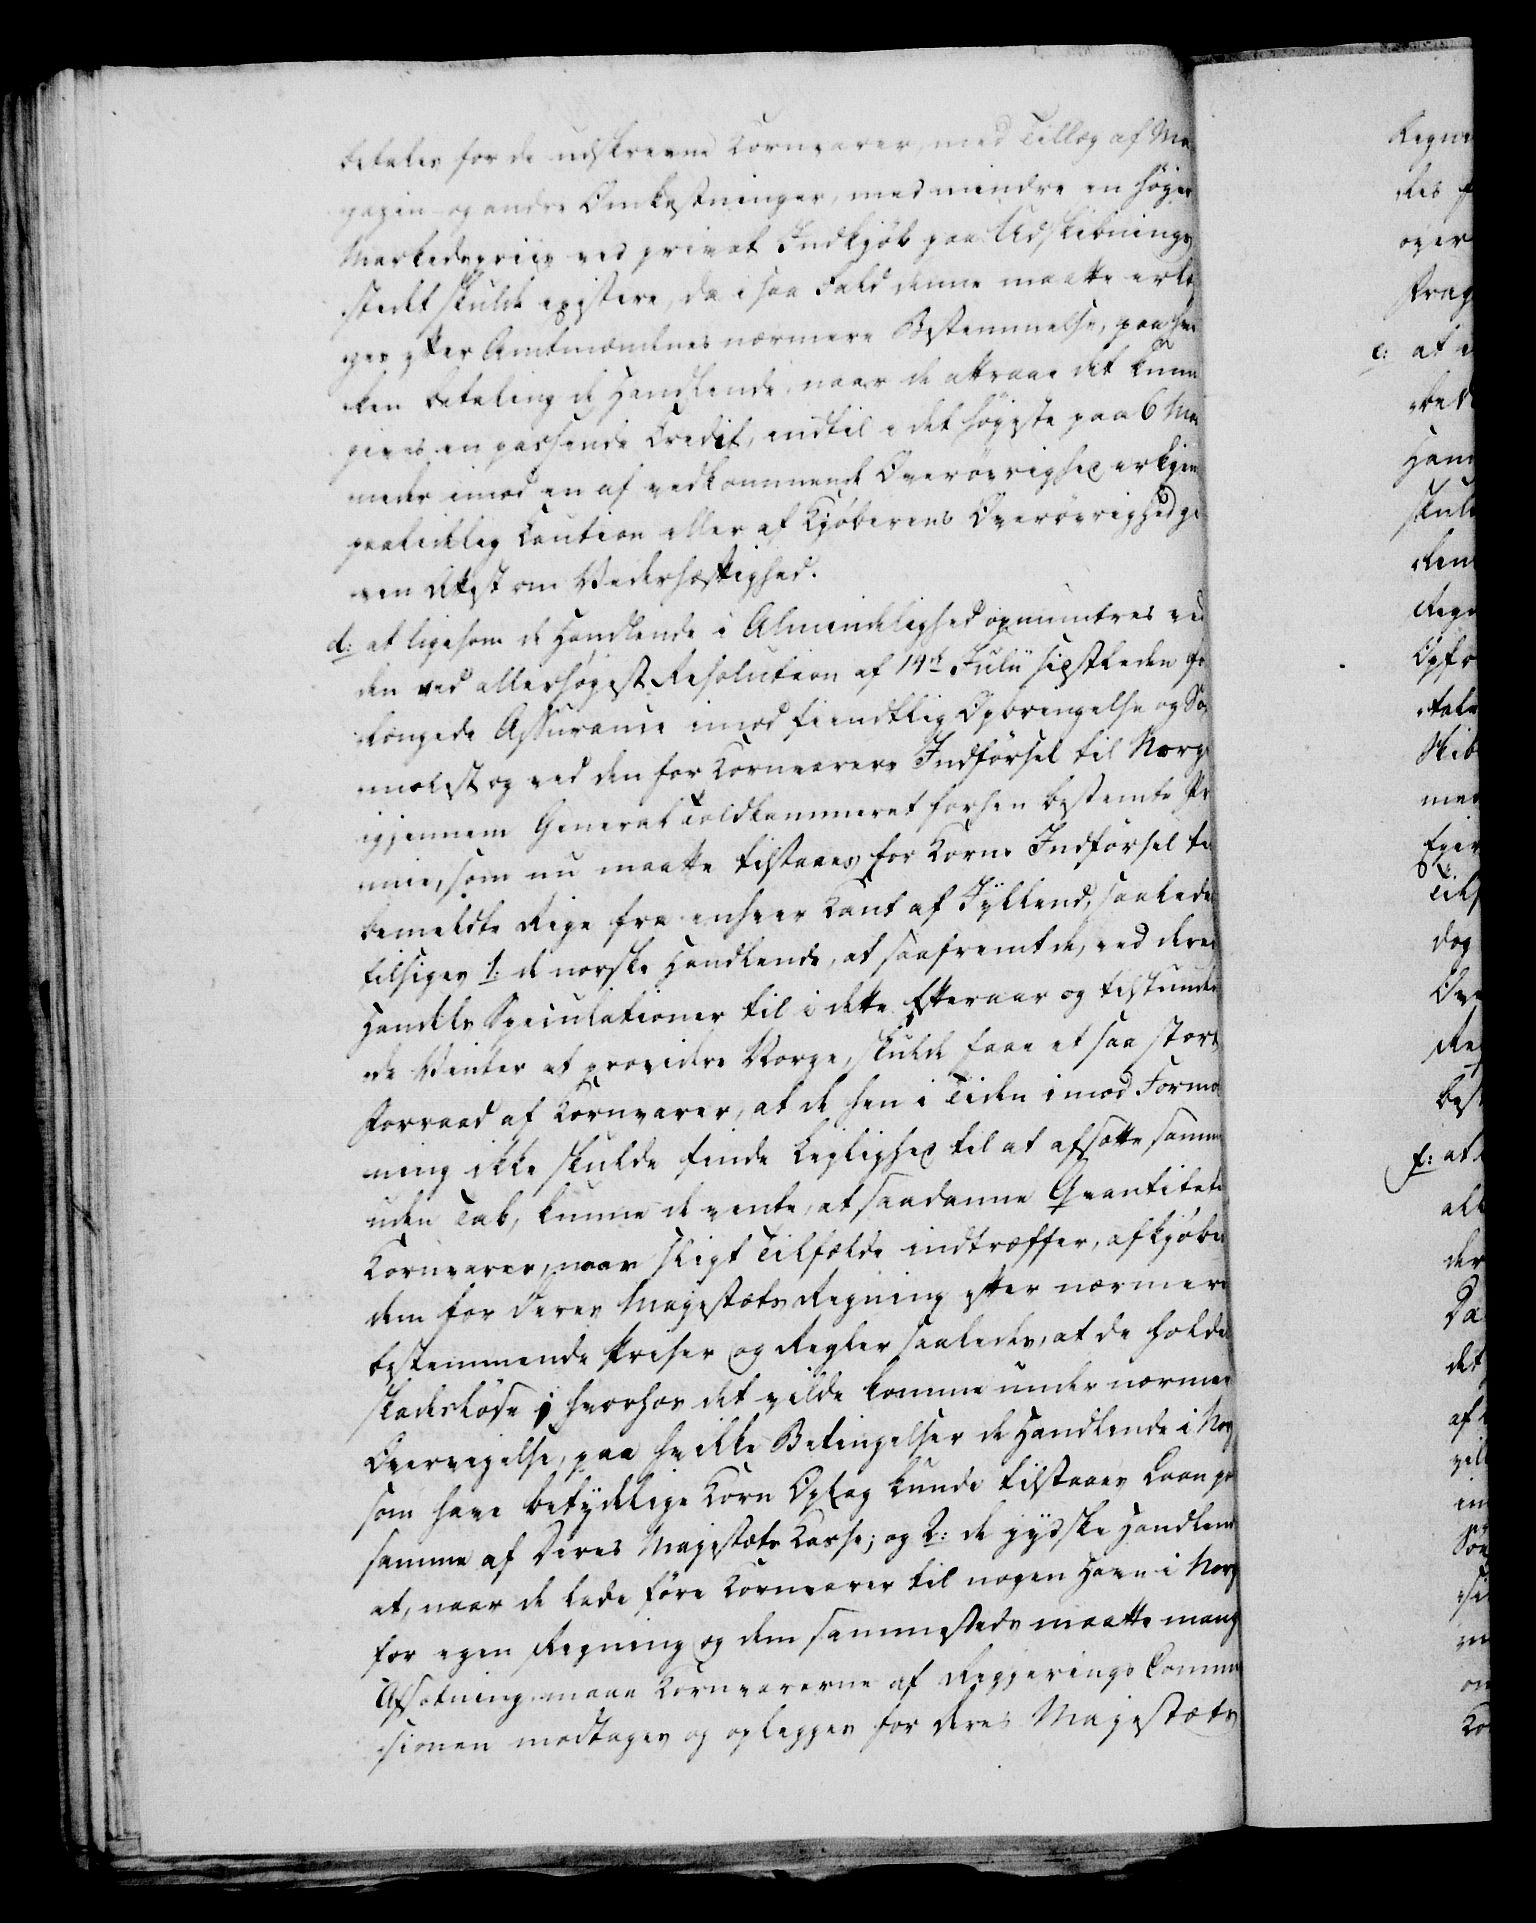 betales for de udskrevne Kornvarer, med Tillæg af Ma
gazin- og andre Omkostninger, med mindre en høyere
Markedspriis ved privat Indkjøb paa Udskibnings
stedet skulde existere, da i saa Fald denne maatte erlæg
ges efter Amtmændenes nærmere Bestemmelse, paa hvil
ken Betaling de Handlende, naar de attraae det kunne
gives en passende Credit, indtil i det høyeste paa 6 Maa
neder imod en af vedkommende Overøvrighed erkjen
paalidelig Caution eller af Kjøberens Overøvrighed gi
ven Attest om Vederhæftighed.
d: at ligesom de Handlende i Almindelighed opmuntres ved
den ved allerhøyest Resolution af 14de Julii sidstleden for
længede Assurance imod fiendtlig Opbringelse og Sø
molest og ved den for Kornvarers Indførsel til Norge
igjennem General Toldkammeret forhen bestemte Præ
mie, som nu maatte tilstaaes for Korns Indførsel til
bemeldte Rige fra enhver Kant af Jylland, saaledes
tilsiges 1: de norske Handlende, at saafremt de, ved deres
Handels Speculationer til i dette Efteraar og tilstunden
de Vinter at providere Norge, skulde faae et saa stort
Forraad af Kornvarer, at de hen i Tiden imod Formo
ning ikke skulde finde Leylighed til at afsætte samme
uden Tab, kunne de vente, at saadanne Qvantiteter
Kornvarer, naar sligt Tilfælde indtræffer, afkjøbes
dem for Deres Majestæts Regning efter nærmere
bestemmende Priser og Regler saaledes, at de holdes
skadesløse; hvorhos det vilde komme under nærmere
Overvejelse, paa hvilke Betingelser de Handlende i Nor
som have betydelige Korn Oplag kunde tilstaaes Laan paa
samme af Deres Majestæts Kasse; og 2: de jydske Handlende
at, naar de lade føre Kornvarer til nogen Havn i Norge
for egen Regning og dem sammesteds maatte mangle
Afsætning, maae Kornvarerne af Regjerings Commis
sionen modtages og oplægges for Deres Majestæts